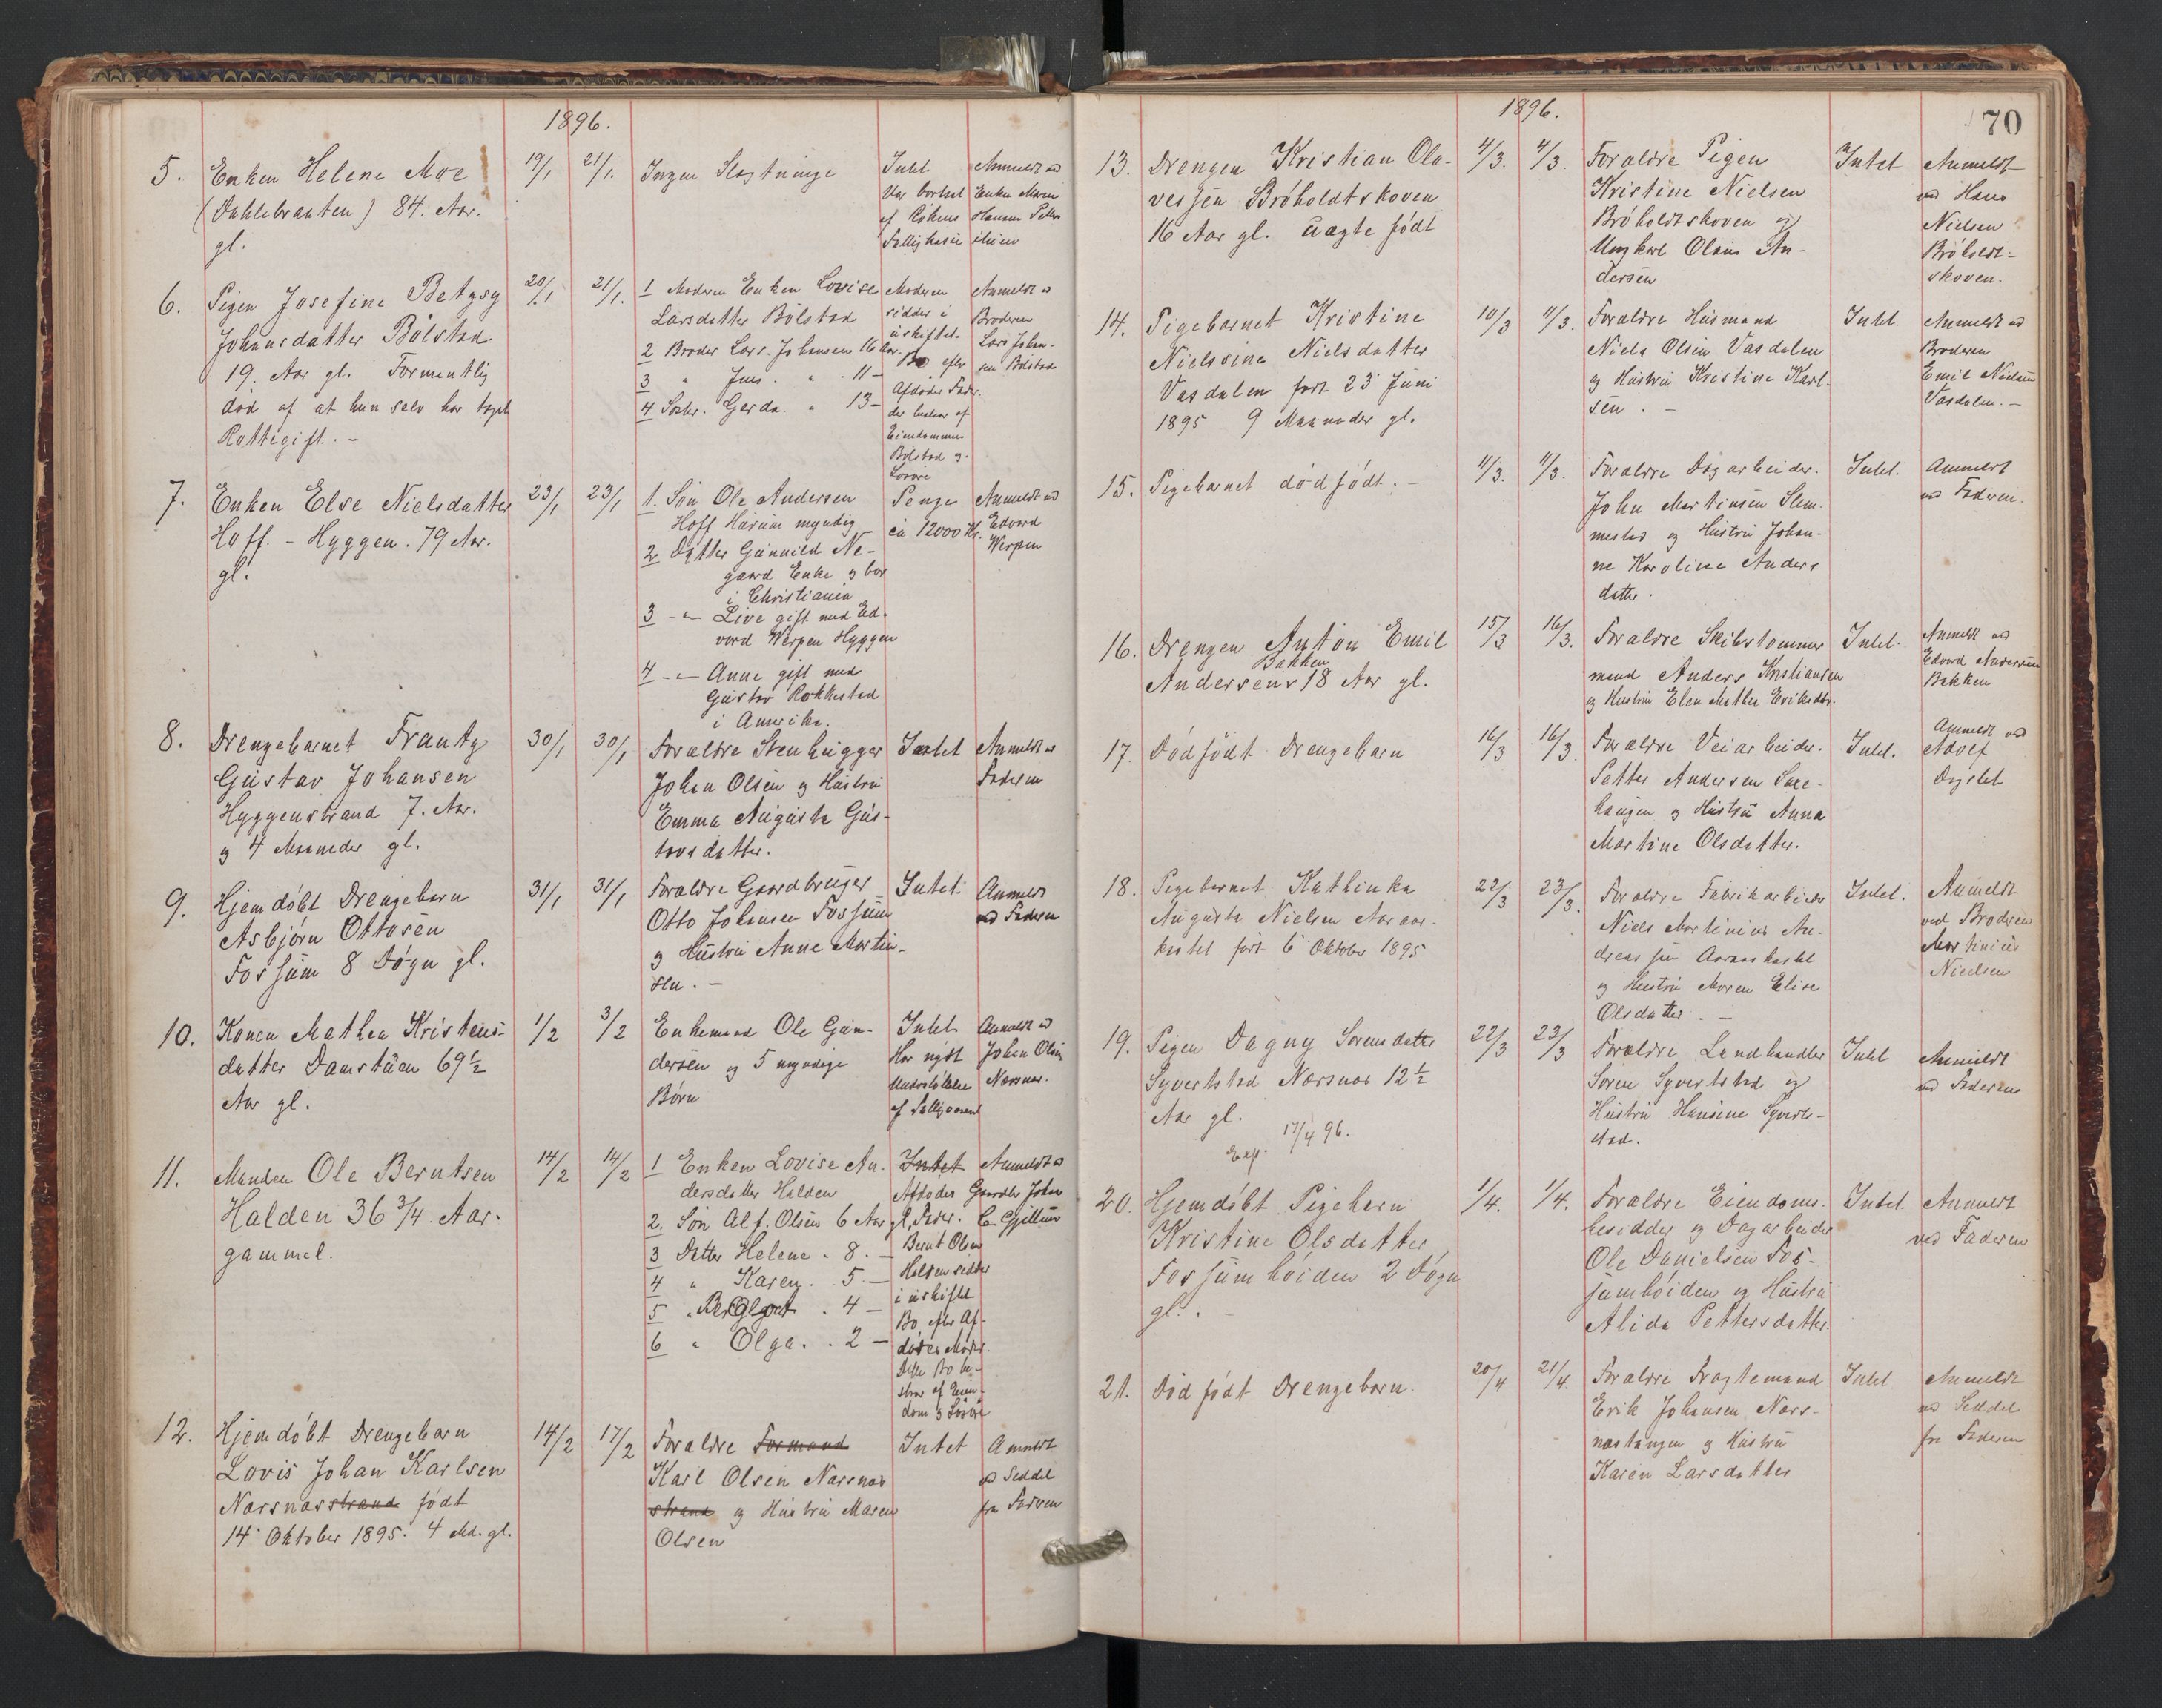 1896.
5. Enken Helene Moe 19/1 21/1. Ingen Slægtninge Intet Anmeldt ved
(Dahlebraaten) 84. Aar. Var bortsat Enken Maren
gl. af Røkens Hansen
Fattigkasse
6. Pigen Josefine Betzsy 20/1 21/1. 1 Moderen Enken Lovise Moderen Anmeldt v
Johansdatter Bölstad Larsdatter Bölstad sidder i Broderen
19. Aar gl. Formentlig 2 Broder Lars Johansen 16 Aar. uskiftet Lars Johan-
död af at hun selv har taget 3 " Jens. " 11 – Bo efter sen Bölstad
Rottegift. – 4 Søster. Gerda. " 13 – Afdøde Fader.
der bestaar af
Eiendommen
Bölstad og
Losöre
7. Enken Else Nielsdatter 23/1 23/1 1. Sön Ole Andersen Penge Anmeldt ved
Hoff. – Hyggen. 79 Aar. Hoff Hurum myndig ca 12000 Kr. Edvard
gl. 2 Datter Gunnild Ne- Werpen
gaard Enke og bor
i Christiania
3 –"– Live gift med Ed-
vard Werpen Hyggen
4 –"– Anne gift med
Gustav Rokkestad
i Amerika.
8. Drengebarnet Frantz 30/1 30/1 Forældre Stenhugger Intet Anmeldt v
Gustav Johansen Johan Olsen og Hustru Faderen
Hyggenstrand 7. Aar. Emma Augusta Gus-
og 4 Maaneder gl. tavsdatter.
9. Hjemdöbt Drengebarn 31/1 31/1 Forældre Gaardbruger Intet. Anmeldt
Asbjörn Ottosen Otto Johansen Fossum ved Faderen
Fossum 8 Dögn gl. og Hustru Anne Martin-
sen. –
10. Konen Mathea Kristens- 1/2 3/2 Enkemand Ole Gun- Intet Anmeldt v
datter Damstuen 69 1/2 dersen og 5 myndige Har nydt Johan Olsen
Aar gl. Börn Understöttelse Nærsnes.
af Fattigvæsenet
11. Manden Ole Berntsen 14/2 14/2 1 Enken Lovise An- Intet Anmeldt v
Halden 36 3/4. Aar. dersdatter Halden Afdödes Gaardbr Johan
gammel. 2. Sön Alf. Olsen 6 Aar gl. Fader. C. Gjellum
3 Datter Helene " 8. – Bernt Olsen
4 " Karen. . 5. – Halden sidder
5 " Bergljot . 4 – i uskiftet
6 " Olga. . 2 – Bo efter Af-
dödes Moder.
Dette Bo be-
staar af Eien-
dom og Losöre
12. Hjemdöbt Drengebarn 14/2 17/2 Forældre Formand Intet Anmeldt
Lovis Johan Karlsen Karl Olsen Nærsnes ved Seddel
Nærsnesstrand födt strand og Hustru Maren fra Faderen
14. Oktober 1895. 4 Md. gl. Olsen
1896. 70
13. Drengen Kristian Ola- 4/3. 4/3. Forældre Pigen Intet Anmeldt
vessen Bröholdtskoven Kristine Nielsen ved Hans
16 Aar gl. uægte födt Bröholdtskoven og Nielsen
Ungkarl Olaus An- Bröholdt-
dersen skoven.
14. Pigebarnet Kristine 10/3 11/3. Forældre Husmand Intet. Anmeldt ved
Nielsine Nielsdatter Niels Olsen Vasdalen Broderen
Vasdalen født 23 Juni og Hustru Kristine Karl- Emil Nielsen
1895 9 Maaneder gl. sen. – Vasdalen. –
15. Pigebarnet dödfödt. – 11/3. 11/3. Forældre Dagarbeider. Intet. Anmeldt
John Martinsen Slem- ved Faderen.
mestad og Hustru Johan-
ne Karoline Anders
datter.
16. Drengen Anton Emil 15/3 16/3. Forældre Skibstømmer Intet. Anmeldt ved
Bakken
Andersen 18 Aar gl. mand Anders Kristiansen Edvard Andersen
og Hustru Elen Mathea Eriksdtr. Bakken
17. Dödfödt Drengebarn 16/3 16/3. Forældre Veiarbeider. Intet. Anmeldt ved
Petter Andersen Saxe- Adolf
haugen og Hustru Anna Dyslet
Martine Olsdatter.
18. Pigebarnet Kathinka 22/3 23/3. Forældre Fabrikarbeider Intet. Anmeldt
Augusta Nielsen Aaraas- Niels Martinius An- ved Broderen
kastet født 6. Oktober 1895 dreassen Aaraaskastet Martinius
og Hustru Maren Elise Nielsen
Olsdatter. –
19. Pigen Dagny Sørensdatter 22/3 23/3 Forældre Landhandler Intet Anmeldt
Syvertstad Nærsnes 12 1/2 Sören Syvertstad og ved Faderen
Aar gl. Hustru Hansine Syverts-
17/4 96. stad.
Exp.
20. Hjemdöbt Pigebarn 1/4. 1/4. Forældre Eiendoms- Intet. Anmeldt
Kristine Olsdatter besidder og Dagarbeider ved Faderen
Fossumhöiden 2 Dögn Ole Danielsen Fos-
gl. – sumhöiden og Hustru
Alida Pettersdatter.
21. Död födt Drengebarn. 20/4 21/4. Forældre Fragtemand Intet Anmeldt
Erik Johansen Nærs- ved Seddel
nestangen og Hustru fra Faderen
Karen Larsdatter